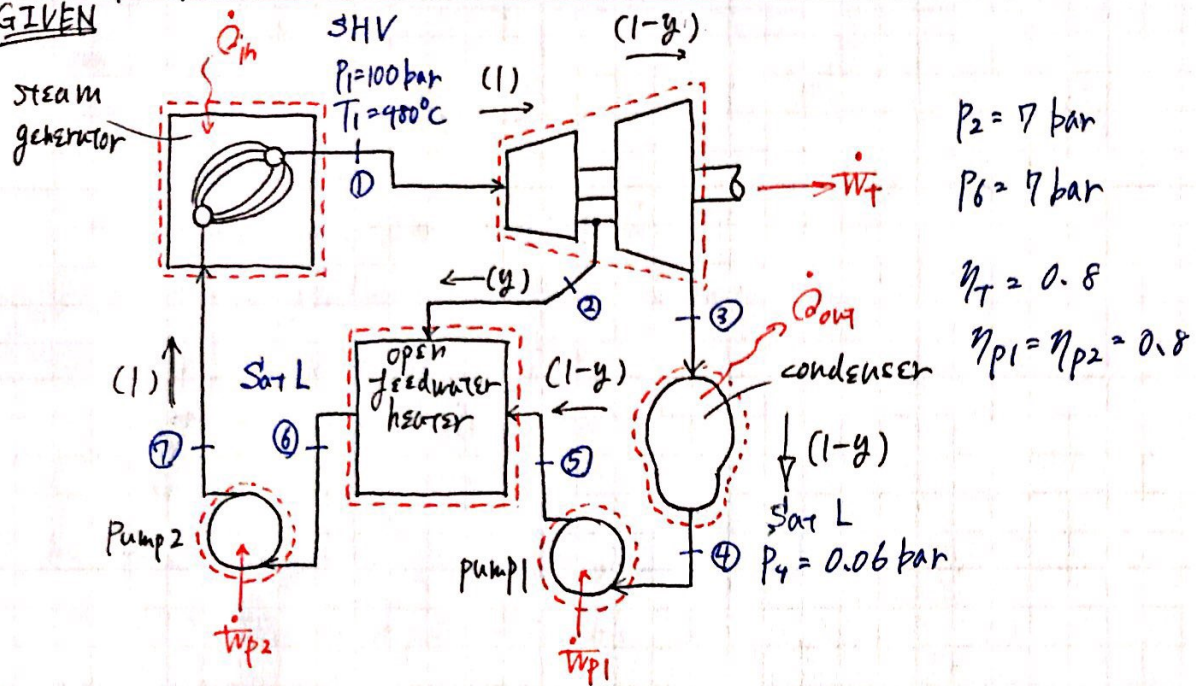 GIVEN
Q̇in
SHV
P₁=100 bar
T₁=480°C
(1)
(1-y)
steam
generator
①
P₂= 7 bar
P₆= 7 bar
ẆT
ηT = 0.8
ηP1 = ηP2 = 0.8
(y)
②
③
Q̇out
condenser
(1)
Sat L
open
feedwater
heater
(1-y)
(1-y)
⑦
⑥
⑤
Sat L
④ P₄ = 0.06 bar
Pump 2
pump 1
ẆP2
ẆP1